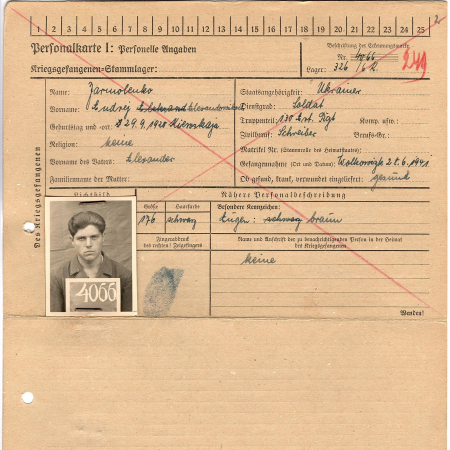 1 2 3 4 5 6 7 8 9 10 11 12 13 14 15 16 17 18 19 20 21 22 23 24 25
2
Personalkarte I: Personelle Angaben
Kriegsgefangenen-Stammlager:
Beschriftung der Erkennungsmarke
Nr. 4066
Lager: 326
249
Des Kriegsgefangenen
Name: Jarmolenko
Vorname: Andrej
Geburtstag und -ort: 29.9.1920 Kiewskaja
Religion: keine
Vorname des Vaters: Alexander
Familienname der Mutter:
Staatsangehörigkeit: Ukrainer
Dienstgrad: Soldat
Truppenteil: 130 Art. Rgt Komp. usw.:
Zivilberuf: Schreiber Berufs-Gr.:
Matrikel Nr. (Stammrolle des Heimatstaates):
Gefangennahme (Ort und Datum): Wolkowysk 28.6.1941
Ob gesund, krank, verwundet eingeliefert: gesund
Lichtbild
Nähere Personalbeschreibung
Größe Haarfarbe Besondere Kennzeichen:
176 schwarz Augen: schwarz braun
Fingerabdruck
des rechten! Zeigefingers
Name und Anschrift der zu benachrichtigenden Person in der Heimat
des Kriegsgefangenen
keine
4066
Wenden!